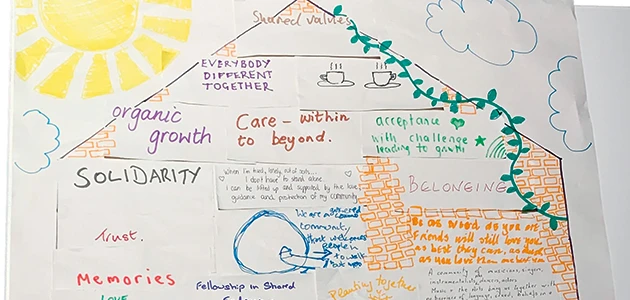 Shared values
EVERYBODY
DIFFERENT
TOGETHER
organic
growth
Care - within
to beyond.
acceptance
with challenge
leading to growth
SOLIDARITY
When I'm tired, lonely, out of sorts...
I don't have to stand alone.
I can be lifted up and supported by the love,
guidance and protection of my community
BELONGING
Trust.
We are a
community,
that welcomes
people in
to walk
Be as weird as you are
Friends will still love you
as best they can, as
as you love them
A community of musicians, singers,
instrumentalists, dancers,
Memories
LOVE
Fellowship in Shared
Planting together